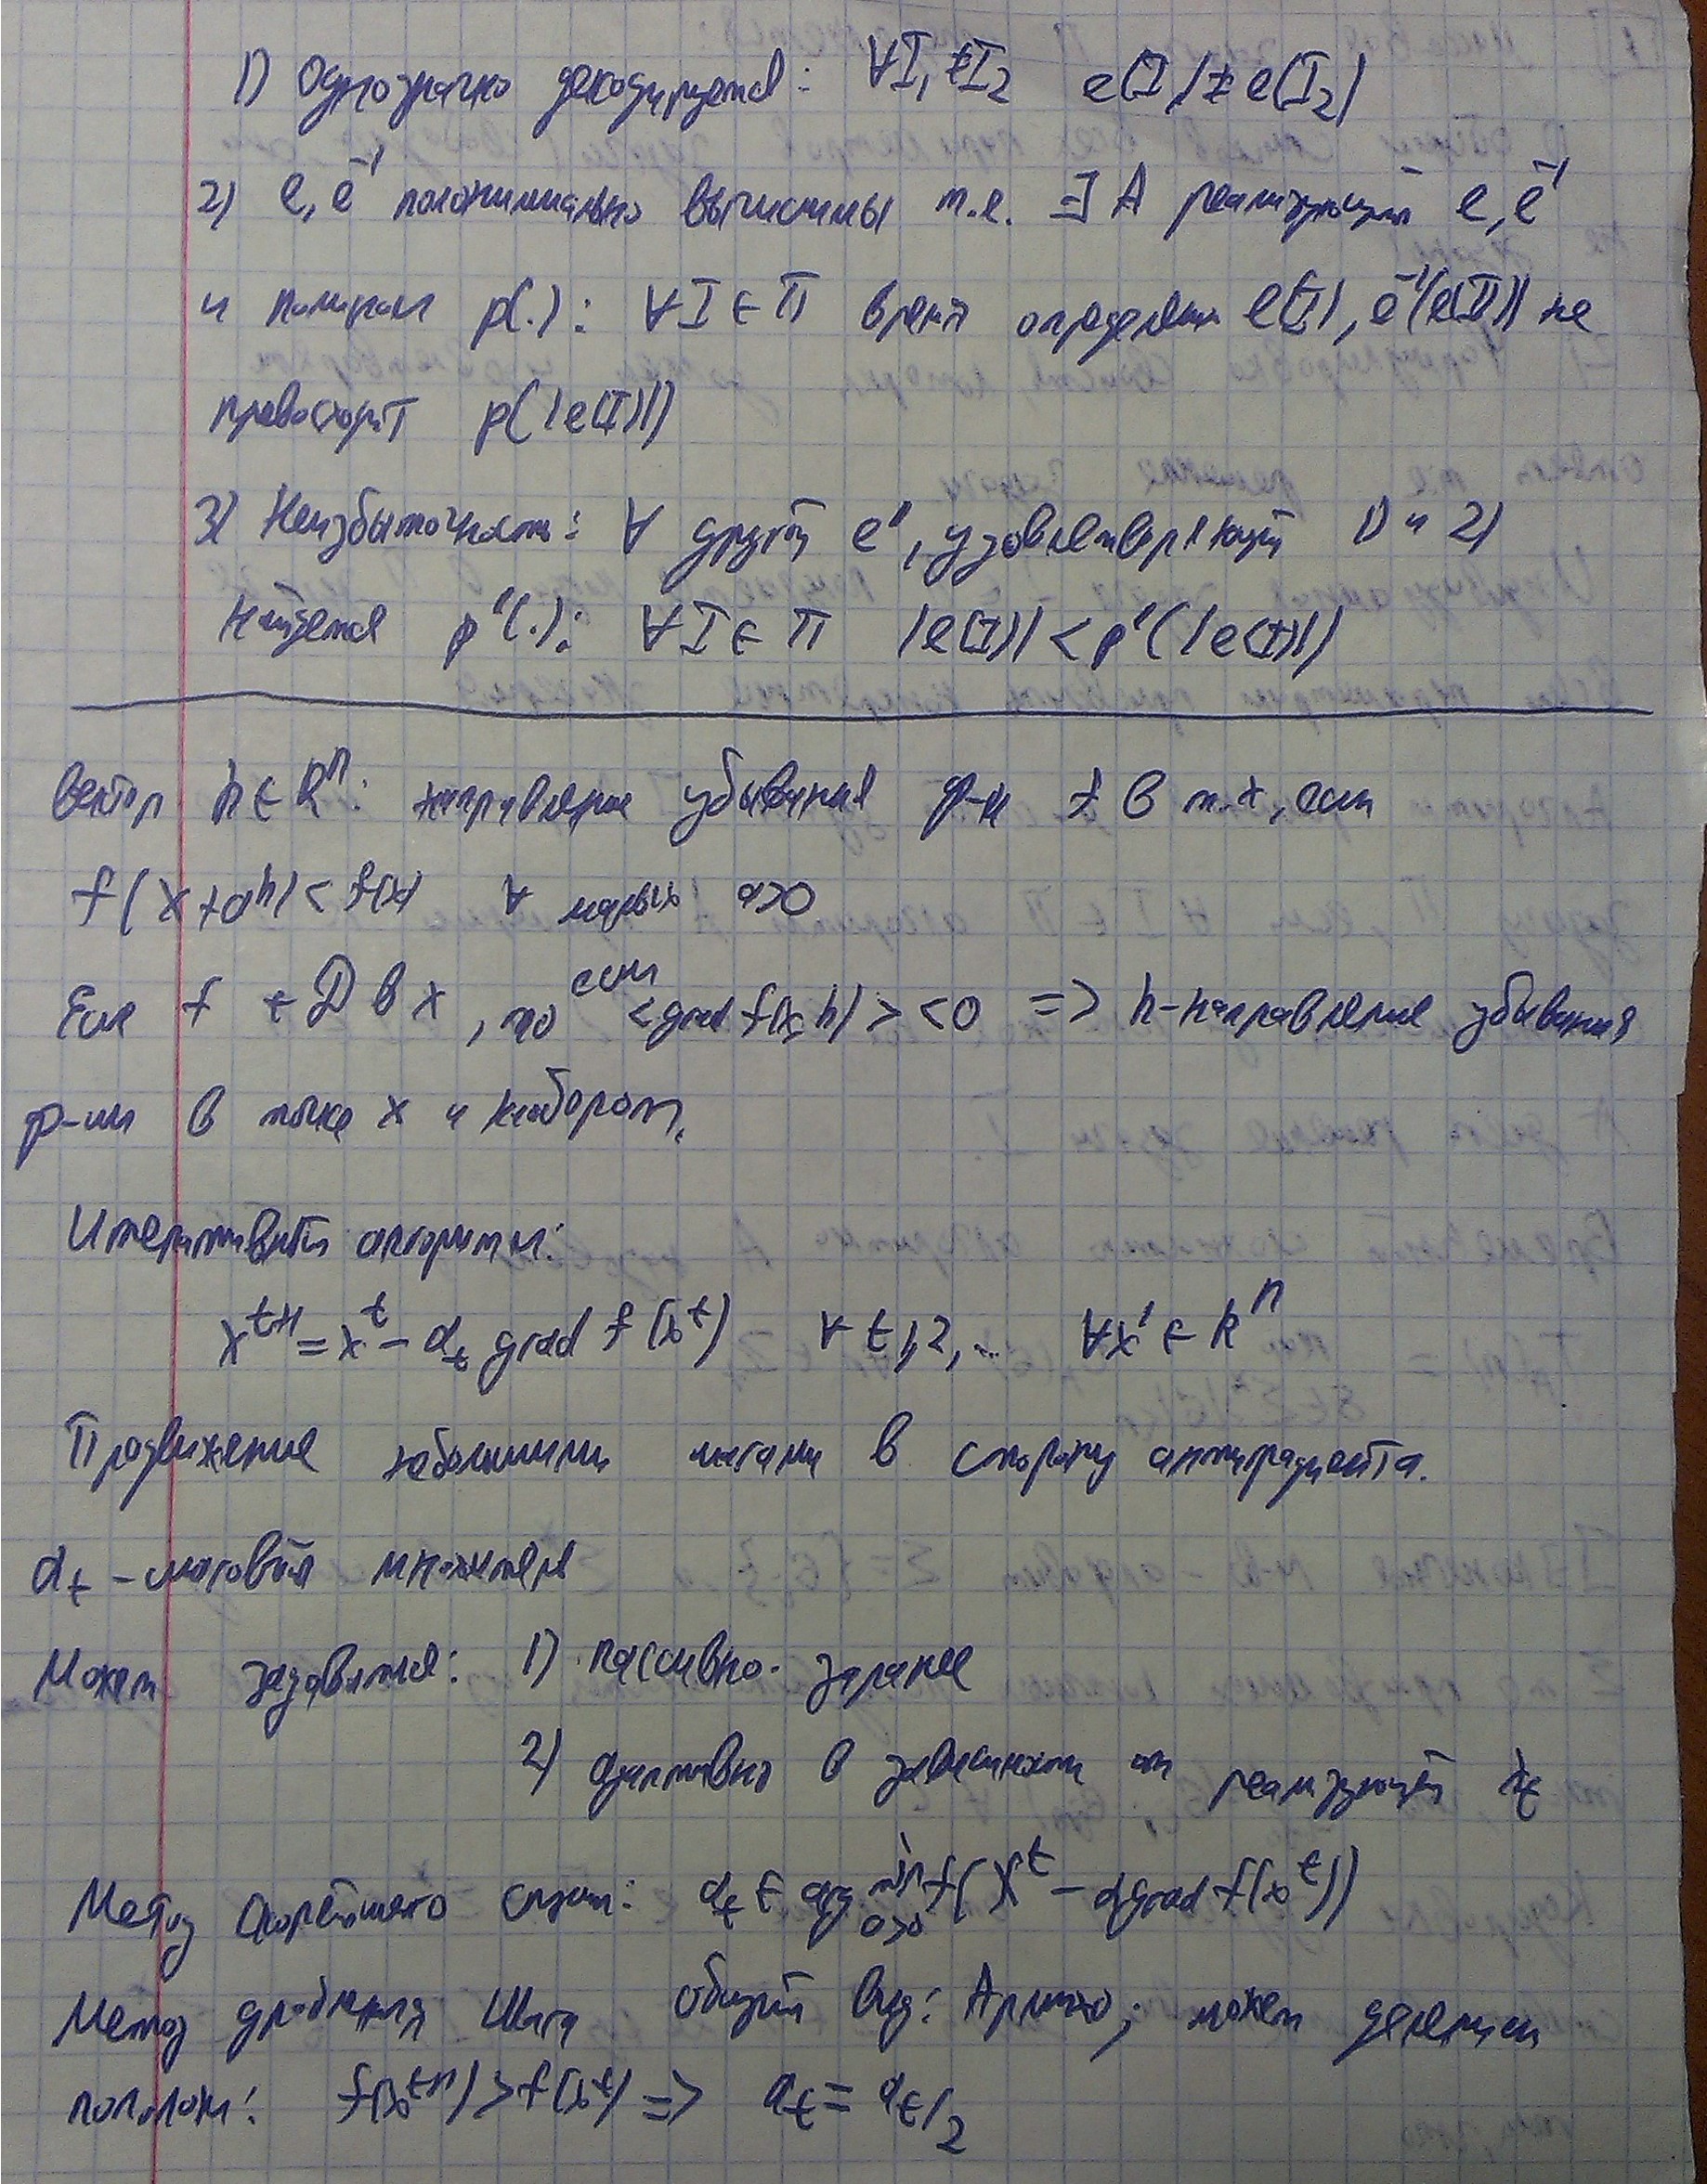 1) Однозначно декодируема: ∀I₁≠I₂ e(I₁)≠e(I₂)
2) e, e⁻¹ полиномиально вычислимы т.е. ∃ A реализующий e, e⁻¹
и полином p(.): ∀I∈П время определения e(I), e⁻¹(e(I)) не
превосходит p(|e(I)|)
3) Неизбыточность: ∀ другой e', удовлетворяющей 1) и 2)
найдется p'(.): ∀I∈П |e(I)| < p'(|e(I)|)
Вектор h∈Rⁿ: направление убывания ф-и f в т. x, если
f(x+αh) < f(x) ∀ малых α>0
Если f ∈ D в x, то если <grad f(x, h)> <0 => h-направление убывания
ф-ии в точке x и наоборот.
Итеративный алгоритм:
xᵗ⁺¹ = xᵗ - αₜ grad f(xᵗ) ∀ t 1, 2, ... ∀x¹ ∈ Rⁿ
Продвижение небольшими шагами в сторону антиградиента.
αₜ - шаговый множитель
Может задаваться: 1) пассивно- заранее
2) адаптивно в зависимости от реализующей xₜ
Метод скорейшего спуска: αₜ ∈ arg min α>0 f(xᵗ - α grad f(xᵗ))
Метод дробления шага общий вид: Армихо; можем делением
пополам: f(xᵗ⁺¹) > f(xᵗ) => αₜ = αₜ/2